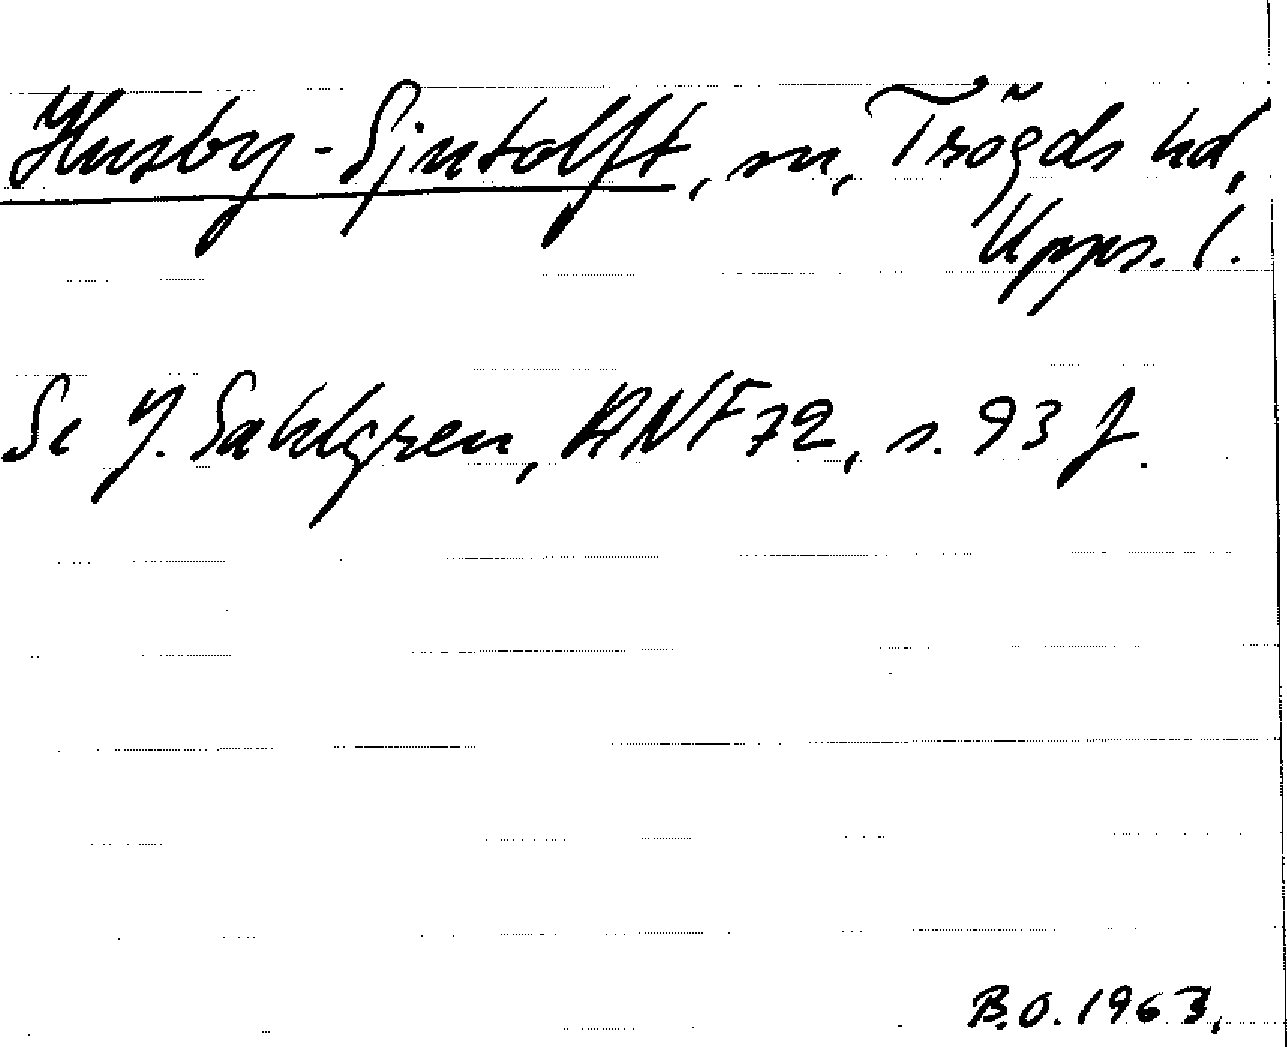 Husby-Sjutolft, sn, Trögds hd,
Upps. l.
Se J. Sahlgren, ANF 72, s. 93 f.
B.O. 1963.